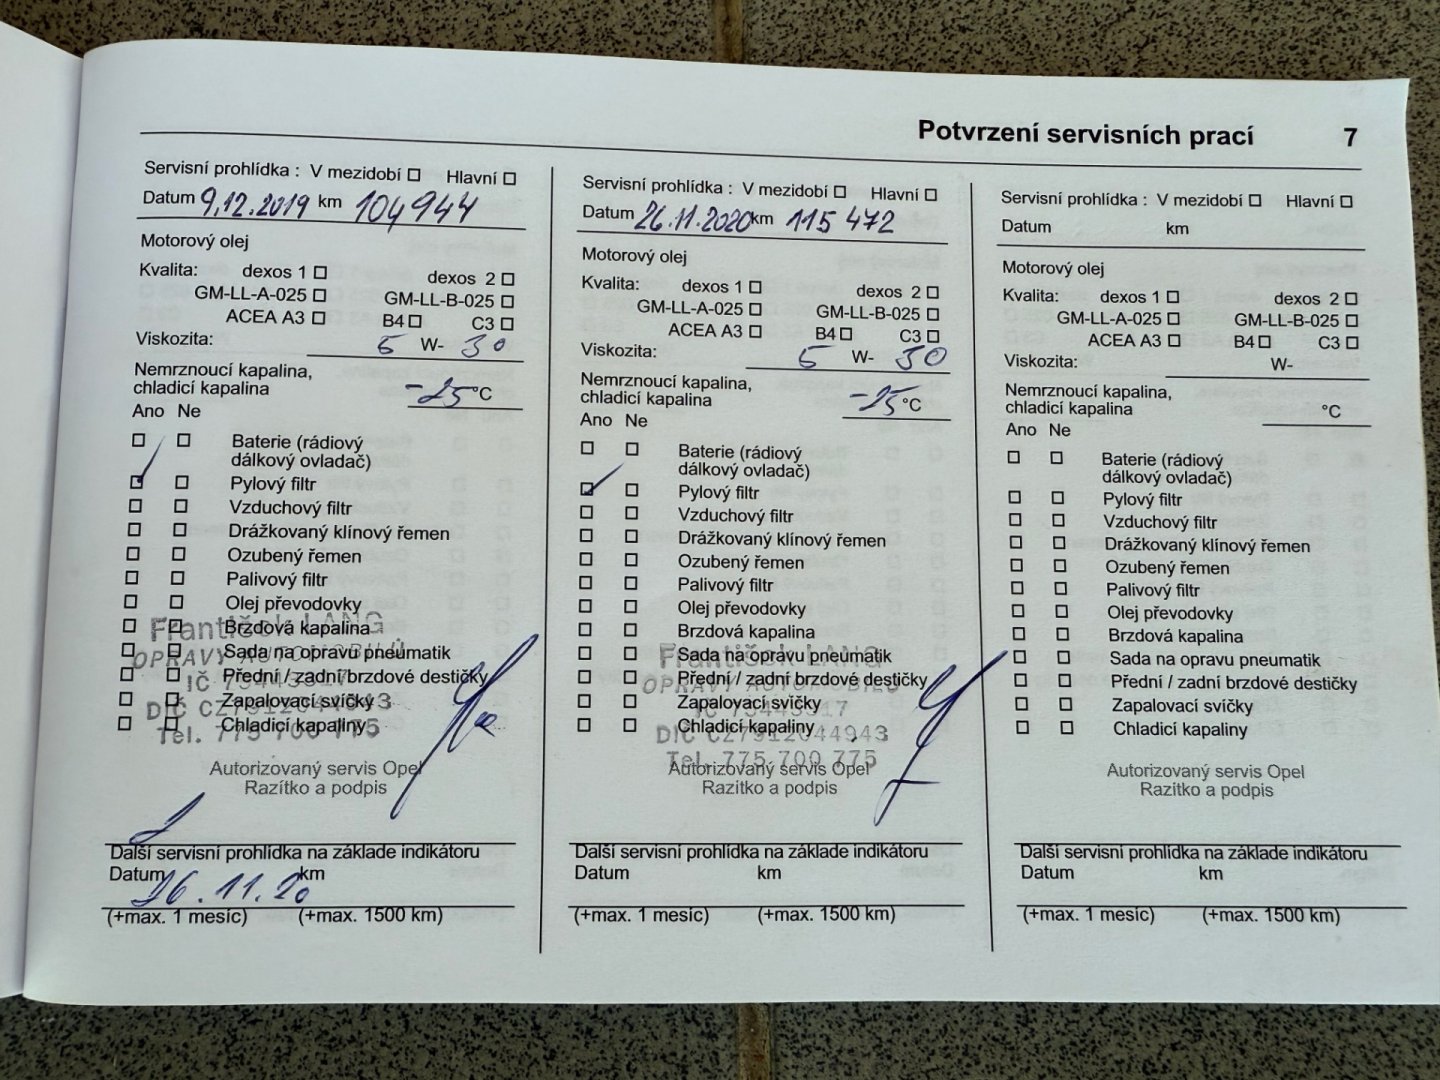 Potvrzení servisních prací 7
Servisní prohlídka : V mezidobí Hlavní
Datum 9.12.2019 km 104944
Motorový olej
Kvalita: dexos 1 dexos 2
GM-LL-A-025 GM-LL-B-025
ACEA A3 B4 C3
Viskozita: 5 W- 30
Nemrznoucí kapalina,
chladicí kapalina -25 °C
Ano Ne
Baterie (rádiový
dálkový ovladač)
Pylový filtr
Vzduchový filtr
Drážkovaný klínový řemen
Ozubený řemen
Palivový filtr
Olej převodovky
Brzdová kapalina
Sada na opravu pneumatik
Přední / zadní brzdové destičky
Zapalovací svíčky
Chladicí kapaliny
František LANG
OPRAVY AUTOMOBILŮ
IČ 73443317
DIČ CZ7912044943
Tel. 775 700 775
Autorizovaný servis Opel
Razítko a podpis
Další servisní prohlídka na základe indikátoru
Datum 26.11.20 km
(+max. 1 mesíc) (+max. 1500 km)
Servisní prohlídka : V mezidobí Hlavní
Datum 26.11.2020 km 115 472
Motorový olej
Kvalita: dexos 1 dexos 2
GM-LL-A-025 GM-LL-B-025
ACEA A3 B4 C3
Viskozita: 5 W- 30
Nemrznoucí kapalina,
chladicí kapalina -25 °C
Ano Ne
Baterie (rádiový
dálkový ovladač)
Pylový filtr
Vzduchový filtr
Drážkovaný klínový řemen
Ozubený řemen
Palivový filtr
Olej převodovky
Brzdová kapalina
Sada na opravu pneumatik
Přední / zadní brzdové destičky
Zapalovací svíčky
Chladicí kapaliny
František LANG
OPRAVY AUTOMOBILŮ
IČ 73443317
DIČ CZ7912044943
Tel. 775 700 775
Autorizovaný servis Opel
Razítko a podpis
Další servisní prohlídka na základe indikátoru
Datum km
(+max. 1 mesíc) (+max. 1500 km)
Servisní prohlídka : V mezidobí Hlavní
Datum km
Motorový olej
Kvalita: dexos 1 dexos 2
GM-LL-A-025 GM-LL-B-025
ACEA A3 B4 C3
Viskozita: W-
Nemrznoucí kapalina,
chladicí kapalina °C
Ano Ne
Baterie (rádiový
dálkový ovladač)
Pylový filtr
Vzduchový filtr
Drážkovaný klínový řemen
Ozubený řemen
Palivový filtr
Olej převodovky
Brzdová kapalina
Sada na opravu pneumatik
Přední / zadní brzdové destičky
Zapalovací svíčky
Chladicí kapaliny
Autorizovaný servis Opel
Razítko a podpis
Další servisní prohlídka na základe indikátoru
Datum km
(+max. 1 mesíc) (+max. 1500 km)